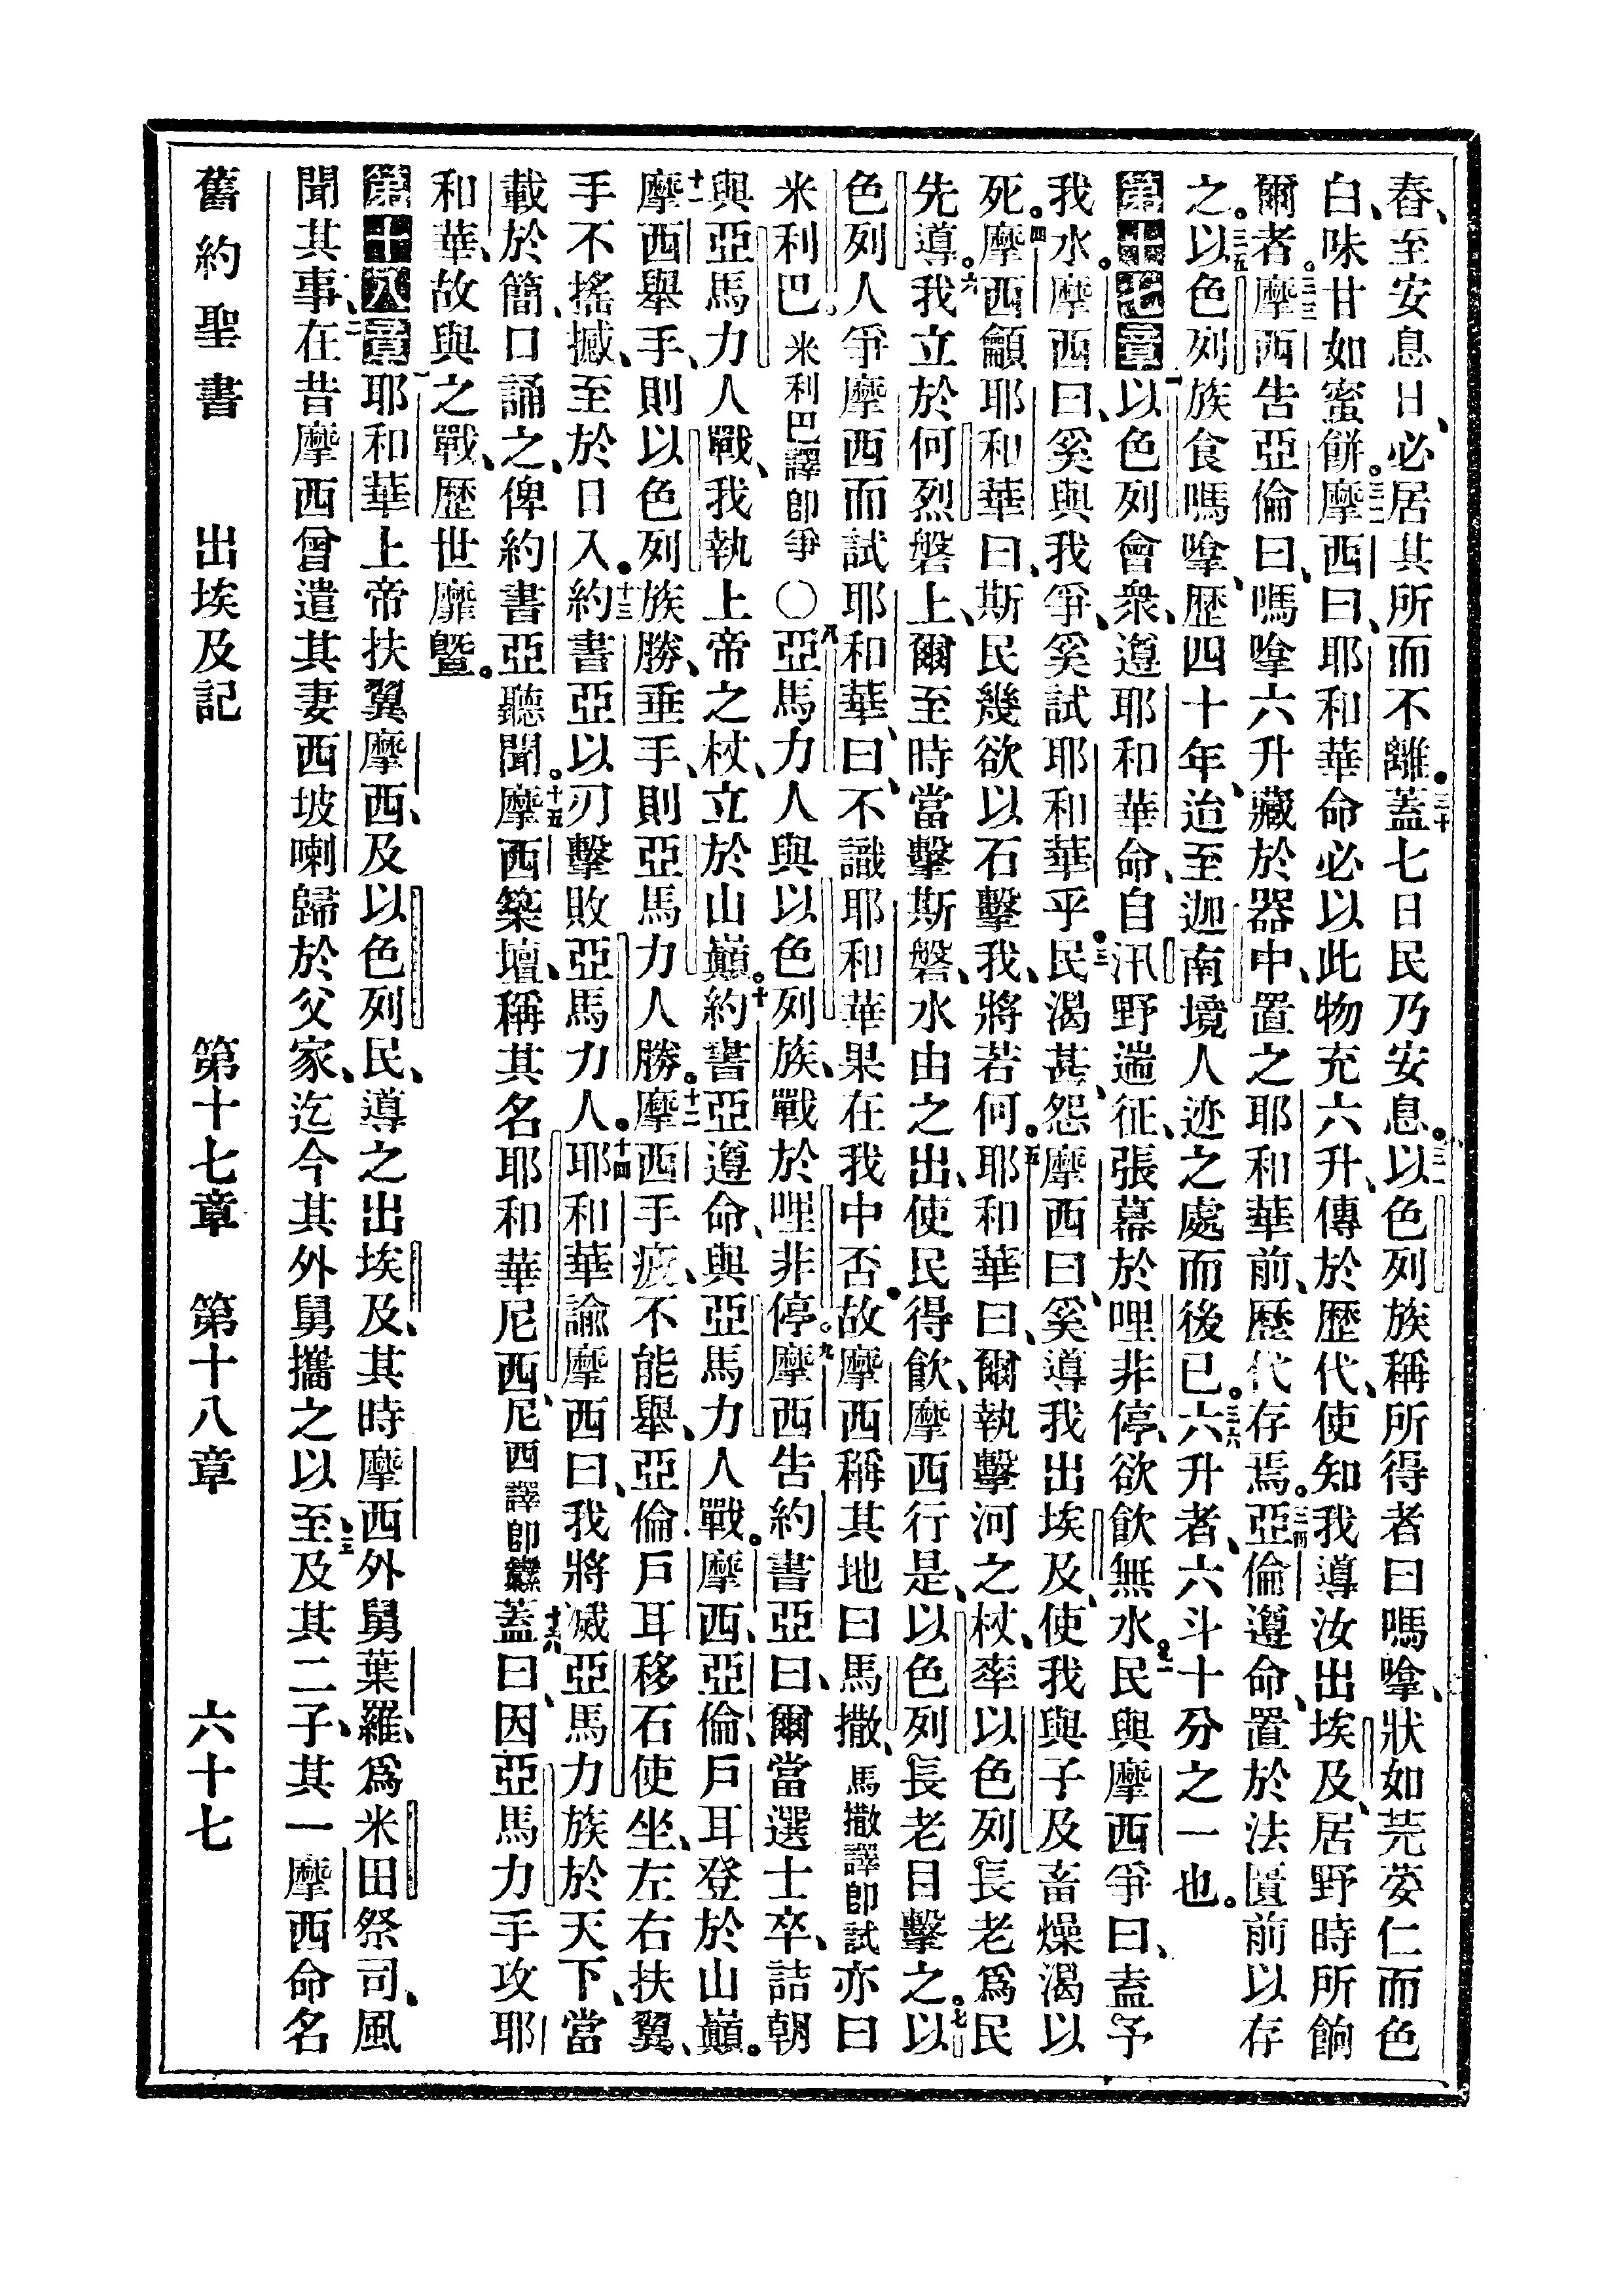 舂、至安息日、必居其所而不離。三十蓋七日民乃安息。三一以色列族稱所得者曰嗎嗱、狀如芫荽仁而色
白、味甘如蜜餅。三二摩西曰、耶和華命必以此物充六升、傳於歷代、使知我導汝出埃及、居野時所餉
爾者。三三摩西告亞倫曰、嗎嗱六升藏於器中、置之耶和華前、歷代存焉。三四亞倫遵命、置於法匱前以存
之。三五以色列族食嗎嗱、歷四十年、迨至迦南境人迹之處而後已。三六六升者、六斗十分之一也。
第十七章一以色列會衆、遵耶和華命、自汛野遄征、張幕於哩非停、欲飲無水。二民與摩西爭曰、盍予
我水。摩西曰、奚與我爭、奚試耶和華乎。三民渴甚、怨摩西曰、奚導我出埃及、使我與子及畜燥渴以
死。四摩西籲耶和華曰、斯民幾欲以石擊我、將若何。五耶和華曰、爾執擊河之杖、率以色列長老爲民
先導。六我立於何烈磐上、爾至時當擊斯磐、水由之出、使民得飲、摩西行是、以色列長老目擊之。七以
色列人爭摩西而試耶和華、曰、不識耶和華果在我中否。故摩西稱其地曰馬撒、馬撒譯卽試亦曰
米利巴。米利巴譯卽爭〇八亞馬力人與以色列族、戰於哩非停。九摩西告約書亞曰、爾當選士卒、詰朝
與亞馬力人戰、我執上帝之杖、立於山巔。十約書亞遵命、與亞馬力人戰。摩西、亞倫、戶耳登於山巔。
十一摩西舉手、則以色列族勝、垂手、則亞馬力人勝。十二摩西手疲、不能舉、亞倫戶耳移石使坐、左右扶翼、
手不搖撼、至於日入。十三約書亞以刃擊敗亞馬力人。十四耶和華諭摩西曰、我將滅亞馬力族於天下、當
載於簡、口誦之、俾約書亞聽聞。十五摩西築壇、稱其名耶和華尼西、尼西譯卽纛十六蓋曰、因亞馬力手攻耶
和華、故與之戰、歷世靡曁。
第十八章一耶和華上帝扶翼摩西、及以色列民、導之出埃及、其時摩西外舅葉羅、爲米田祭司、風
聞其事、二在昔摩西曾遣其妻西坡喇歸於父家、迄今其外舅攜之以至、三及其二子、其一摩西命名
舊約聖書 出埃及記 第十七章 第十八章 六十七